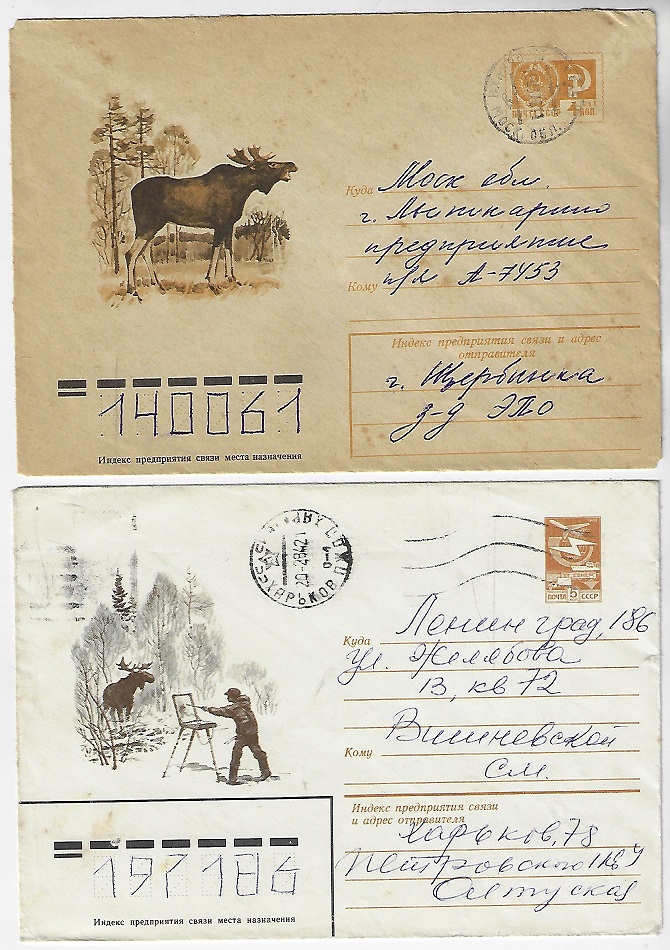 ПОЧТА СССР 4 КОП.
МОСК. ОБЛ.
Куда Моск обл.
г. Лыткарино
предприятие
Кому п/я А-7453
Индекс предприятия связи и адрес
отправителя
г. Щербинка
з-д ЭПО
140061
Индекс предприятия связи места назначения
ХАРЬКОВ
ПОЧТА 5 СССР
Куда Ленинград, 186
ул. Желябова
13, кв 72
Вишневской
Кому С.М.
Индекс предприятия связи
и адрес отправителя
Харьков, 78
Петровского
197186
Индекс предприятия связи места назначения